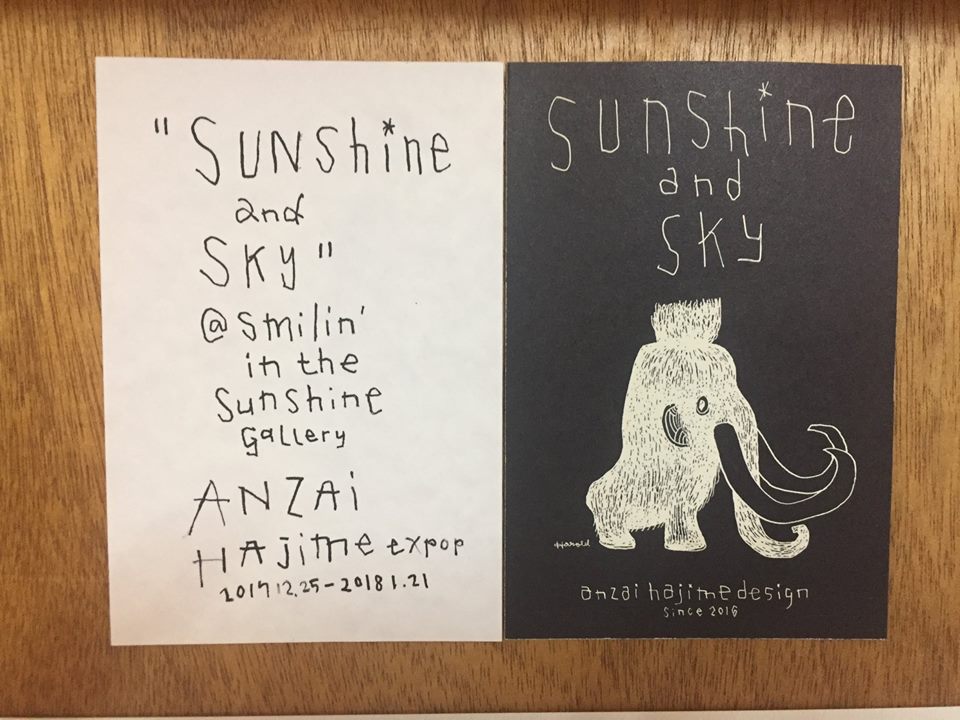 "SUNShine
and
SKY"
@ Smilin'
in the
Sunshine
Gallery
ANZAi
HAjime expop
2017 12.25-2018 1.21
Sunshine
and
SKy
Harold
anzai hajime design
Since 2016